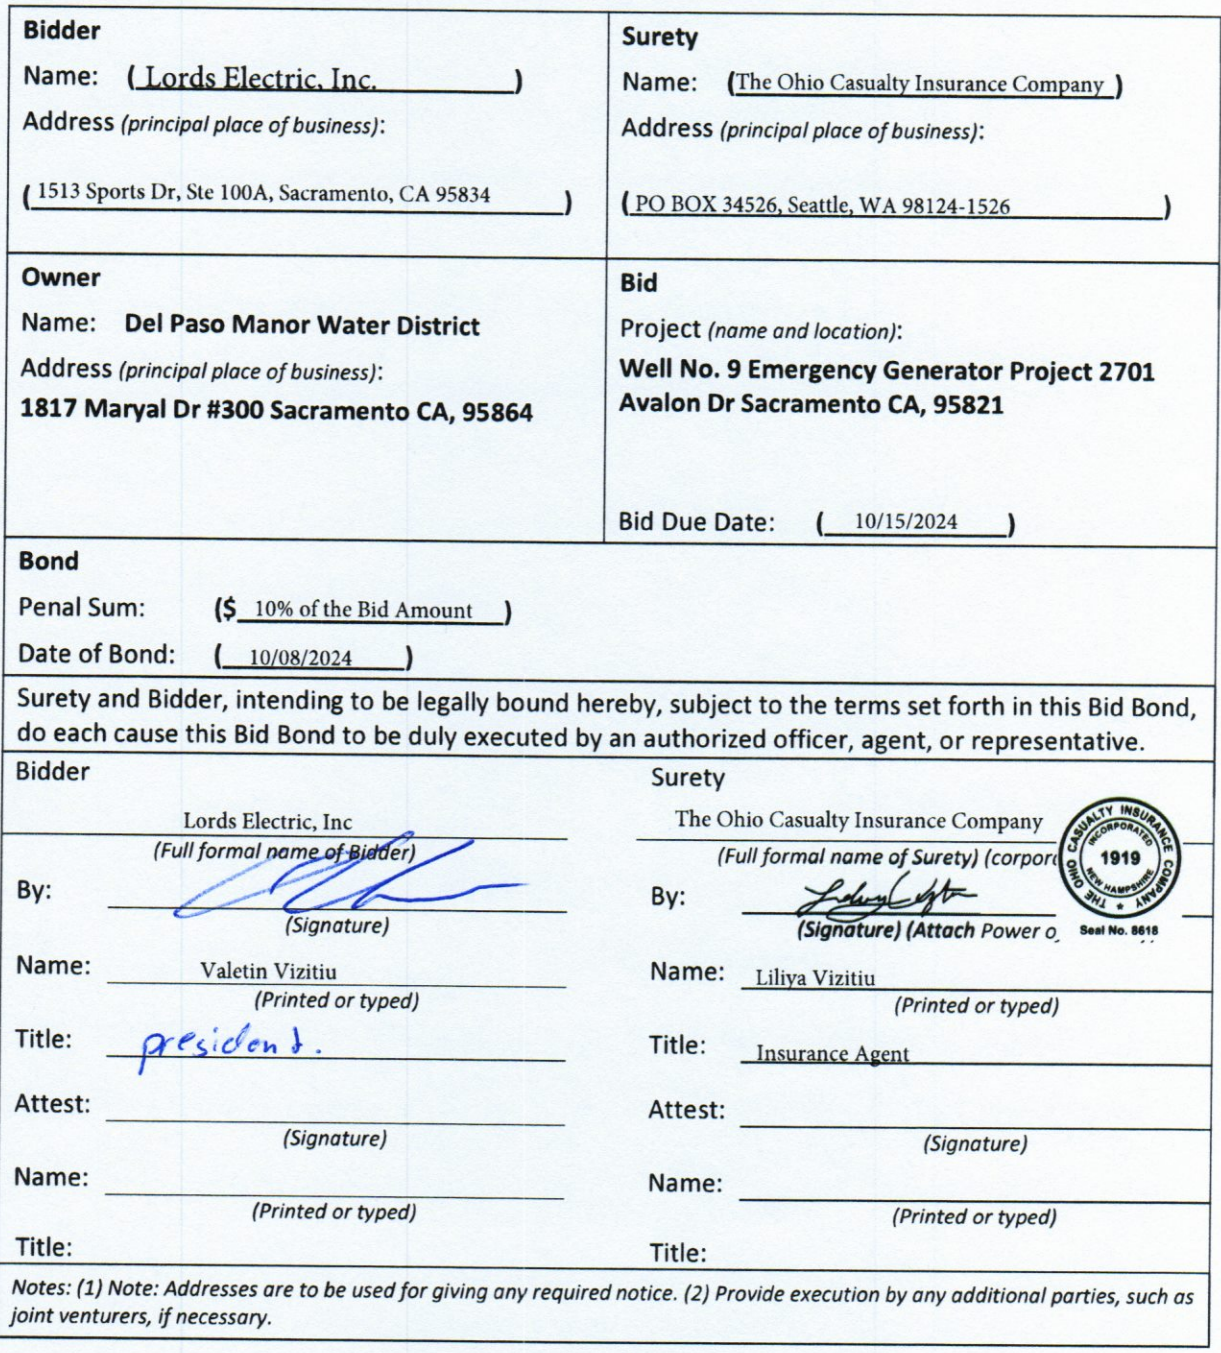 Bidder
Name: ( Lords Electric, Inc. )
Address (principal place of business):
( 1513 Sports Dr, Ste 100A, Sacramento, CA 95834 )
Surety
Name: (The Ohio Casualty Insurance Company )
Address (principal place of business):
( PO BOX 34526, Seattle, WA 98124-1526 )
Owner
Name: Del Paso Manor Water District
Address (principal place of business):
1817 Maryal Dr #300 Sacramento CA, 95864
Bid
Project (name and location):
Well No. 9 Emergency Generator Project 2701
Avalon Dr Sacramento CA, 95821
Bid Due Date: ( 10/15/2024 )
Bond
Penal Sum: ($ 10% of the Bid Amount )
Date of Bond: ( 10/08/2024 )
Surety and Bidder, intending to be legally bound hereby, subject to the terms set forth in this Bid Bond,
do each cause this Bid Bond to be duly executed by an authorized officer, agent, or representative.
Bidder
Lords Electric, Inc
(Full formal name of Bidder)
By:
(Signature)
Name: Valetin Vizitiu
(Printed or typed)
Title: president.
Attest:
(Signature)
Name:
(Printed or typed)
Title:
Surety
The Ohio Casualty Insurance Company
(Full formal name of Surety) (corpor
By:
(Signature) (Attach Power o
THE OHIO CASUALTY INSURANCE COMPANY
INCORPORATED
1919
NEW HAMPSHIRE
Seal No. 8618
Name: Liliya Vizitiu
(Printed or typed)
Title: Insurance Agent
Attest:
(Signature)
Name:
(Printed or typed)
Title:
Notes: (1) Note: Addresses are to be used for giving any required notice. (2) Provide execution by any additional parties, such as
joint venturers, if necessary.